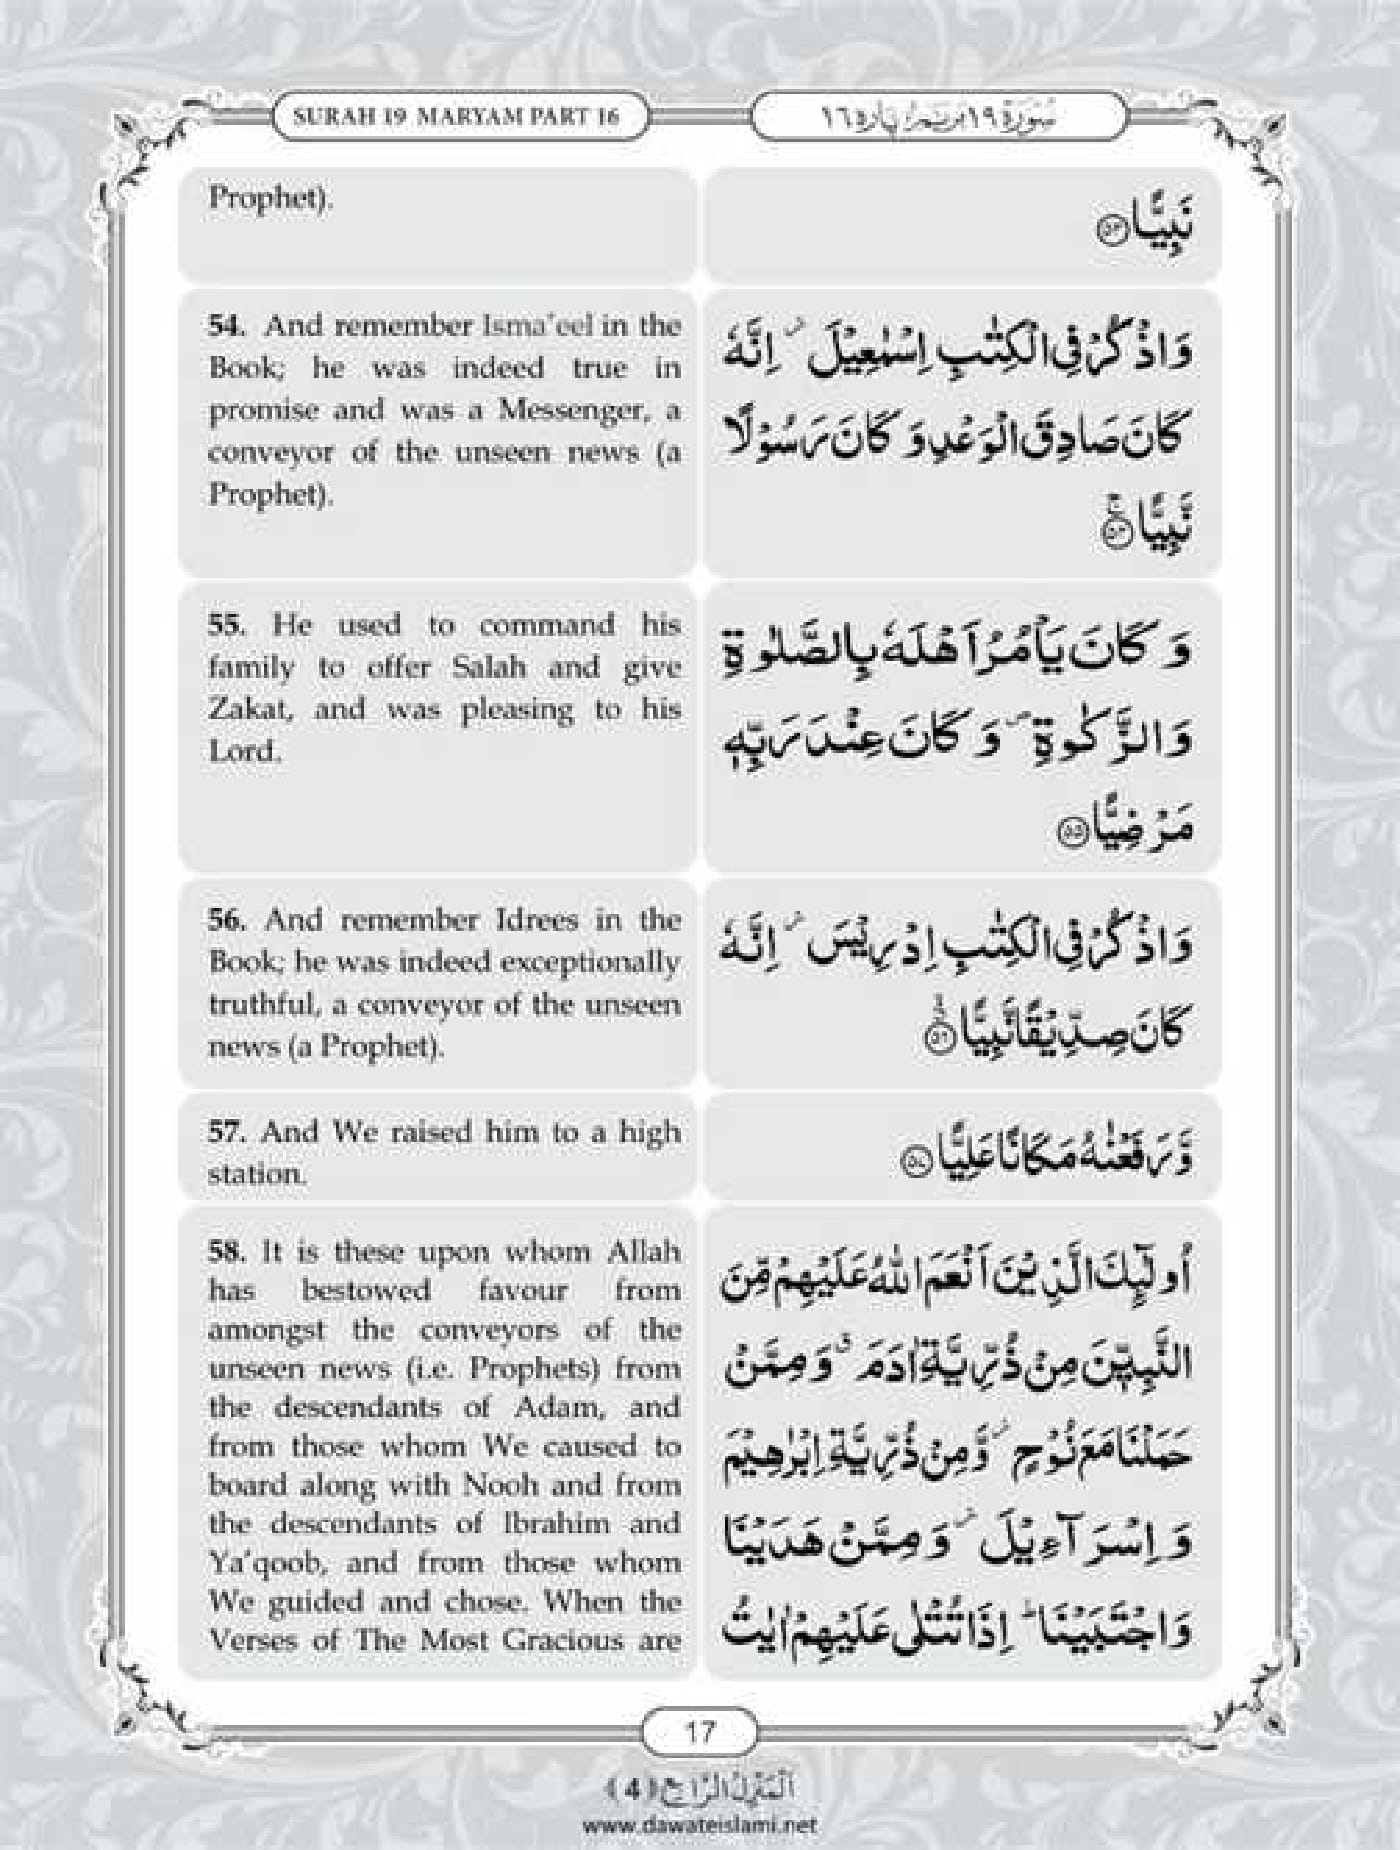 SURAH 19 MARYAM PART 16
سُوْرَةُ ١٩ مَرْيَمَ، پَارَه ١٦
Prophet).
نَبِيًّا ﴿۵۳﴾
54. And remember Isma'eel in the
Book; he was indeed true in
promise and was a Messenger, a
conveyor of the unseen news (a
Prophet).
وَاذْكُرْ فِي الْكِتٰبِ اِسْمٰعِيْلَ ۫ اِنَّهٗ
كَانَ صَادِقَ الْوَعْدِ وَ كَانَ رَسُوْلًا
نَّبِيًّا ﴿۵۴﴾
55. He used to command his
family to offer Salah and give
Zakat, and was pleasing to his
Lord.
وَ كَانَ يَاْمُرُ اَهْلَهٗ بِالصَّلٰوةِ
وَ الزَّكٰوةِ ۪ وَ كَانَ عِنْدَ رَبِّهٖ
مَرْضِيًّا ﴿۵۵﴾
56. And remember Idrees in the
Book; he was indeed exceptionally
truthful, a conveyor of the unseen
news (a Prophet).
وَاذْكُرْ فِي الْكِتٰبِ اِدْرِيْسَ ۫ اِنَّهٗ
كَانَ صِدِّيْقًا نَّبِيًّا ﴿۵۶﴾
57. And We raised him to a high
station.
وَّ رَفَعْنٰهُ مَكَانًا عَلِيًّا ﴿۵۷﴾
58. It is these upon whom Allah
has bestowed favour from
amongst the conveyors of the
unseen news (i.e. Prophets) from
the descendants of Adam, and
from those whom We caused to
board along with Nooh and from
the descendants of Ibrahim and
Ya'qoob, and from those whom
We guided and chose. When the
Verses of The Most Gracious are
اُولٰٓئِكَ الَّذِيْنَ اَنْعَمَ اللّٰهُ عَلَيْهِمْ مِّنَ
النَّبِيّٖنَ مِنْ ذُرِّيَّةِ اٰدَمَ ۗ وَ مِمَّنْ
حَمَلْنَا مَعَ نُوْحٍ ۫ وَّ مِنْ ذُرِّيَّةِ اِبْرٰهِيْمَ
وَ اِسْرَآءِيْلَ ۫ وَ مِمَّنْ هَدَيْنَا
وَاجْتَبَيْنَا ؕ اِذَا تُتْلٰى عَلَيْهِمْ اٰيٰتُ
17
اَلْمَنْزِلُ الرَّابِعُ (4)
www.dawateislami.net